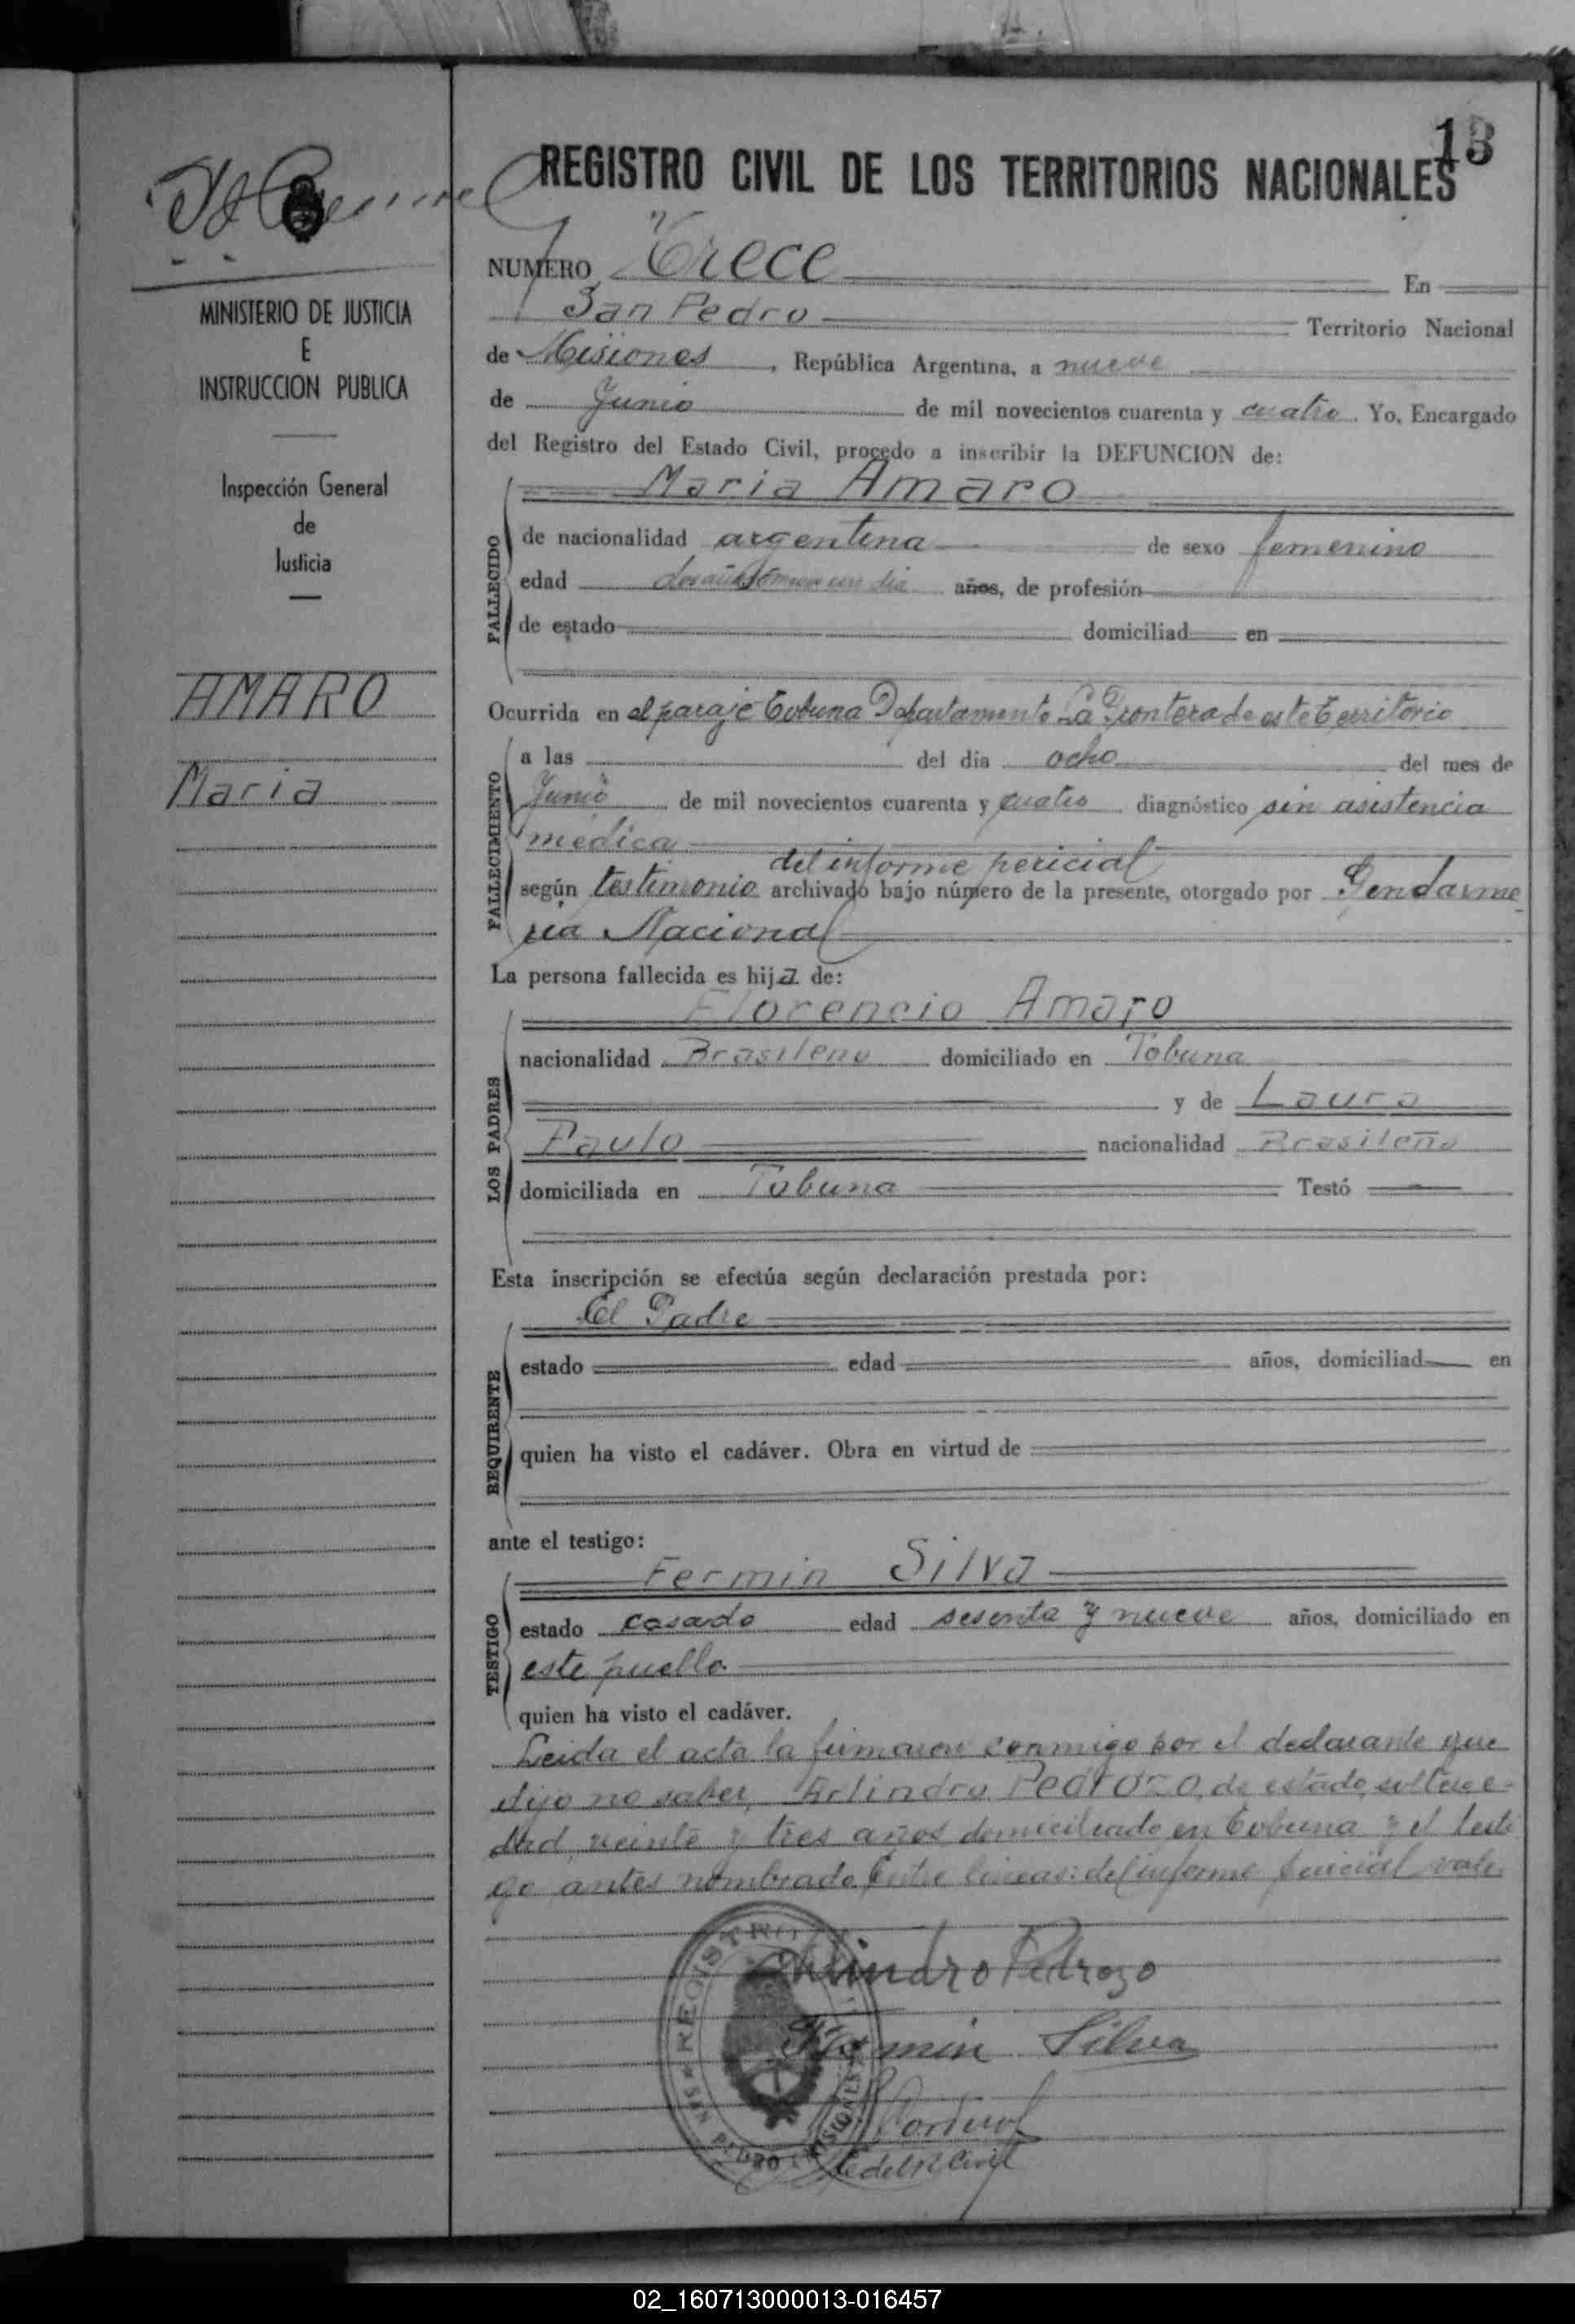 13
REGISTRO CIVIL DE LOS TERRITORIOS NACIONALES
MINISTERIO DE JUSTICIA
E
INSTRUCCION PUBLICA
Inspección General
de
Justicia
AMARO
Maria
NUMERO Trece En
San Pedro Territorio Nacional
de Misiones, República Argentina, a nueve
de Junio de mil novecientos cuarenta y cuatro. Yo, Encargado
del Registro del Estado Civil, procedo a inscribir la DEFUNCION de:
Maria Amaro
FALLECIDO
de nacionalidad argentina de sexo femenino
edad dos años un dia años, de profesión
de estado domiciliad en
Ocurrida en el paraje Tobuna Departamento La Frontera de este Territorio
FALLECIMIENTO
a las del día ocho del mes de
Junio de mil novecientos cuarenta y cuatro diagnóstico sin asistencia
medica
del informe pericial
según testimonio archivado bajo número de la presente, otorgado por Gendarme
ria Nacional
La persona fallecida es hija de:
LOS PADRES
Florencio Amaro
nacionalidad Brasileno domiciliado en Tobuna
y de Laura
Paulo nacionalidad Brasileña
domiciliada en Tobuna Testó
Esta inscripción se efectúa según declaración prestada por:
REQUIRENTE
El Padre
estado edad años, domiciliad en
quien ha visto el cadáver. Obra en virtud de
ante el testigo:
TESTIGO
Fermin Silva
estado casado edad sesenta y nueve años, domiciliado en
este pueblo
quien ha visto el cadáver.
Leida el acta la firmaron conmigo por el declarante que
dijo no saber, Arlindro Pedrozo, de estado soltero e-
dad veinte y tres años domiciliado en Tobuna y el testi
go antes nombrado. Entre lineas: del informe pericial vale.
Arlindro Pedrozo
Fermin Silva
REGISTRO
SAN PEDRO MISIONES
E del R Civil
02_160713000013-016457